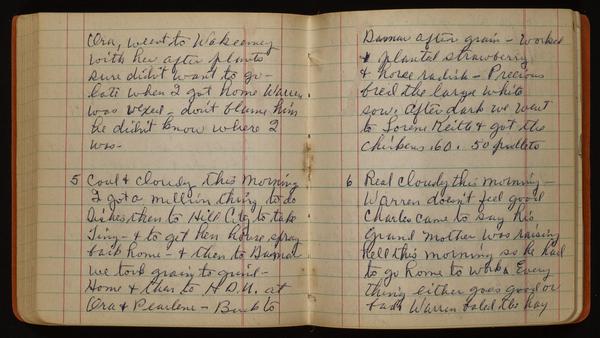 Ora, went to Wakeeney
with her after plants
sure did'nt want to go -
late when I got home Warren
was vexed - don't blame him
he did'nt know where I
was -
5 Cool & cloudy this morning
I got a million things to do
Dishes, then to Hill City to take
Tiny - & to get hen house spray
back home - & then to Damar
we took grain to grind -
Home & then to H.D.U. at
Ora & Pearlene - Back to
Damar after grain - Worked
& planted strawberry
& horse radish - Precious
bred the large white
sow. After dark we went
to Lorene Keith & got the
chickens 60 . 50 pullets
6 Real Cloudy this morning -
Warren doesn't feel good
Charles came to say his
Grand Mother was raising
Hell this morning so he had
to go home to work. Every
thing either goes good or
bad. Warren baled the hay